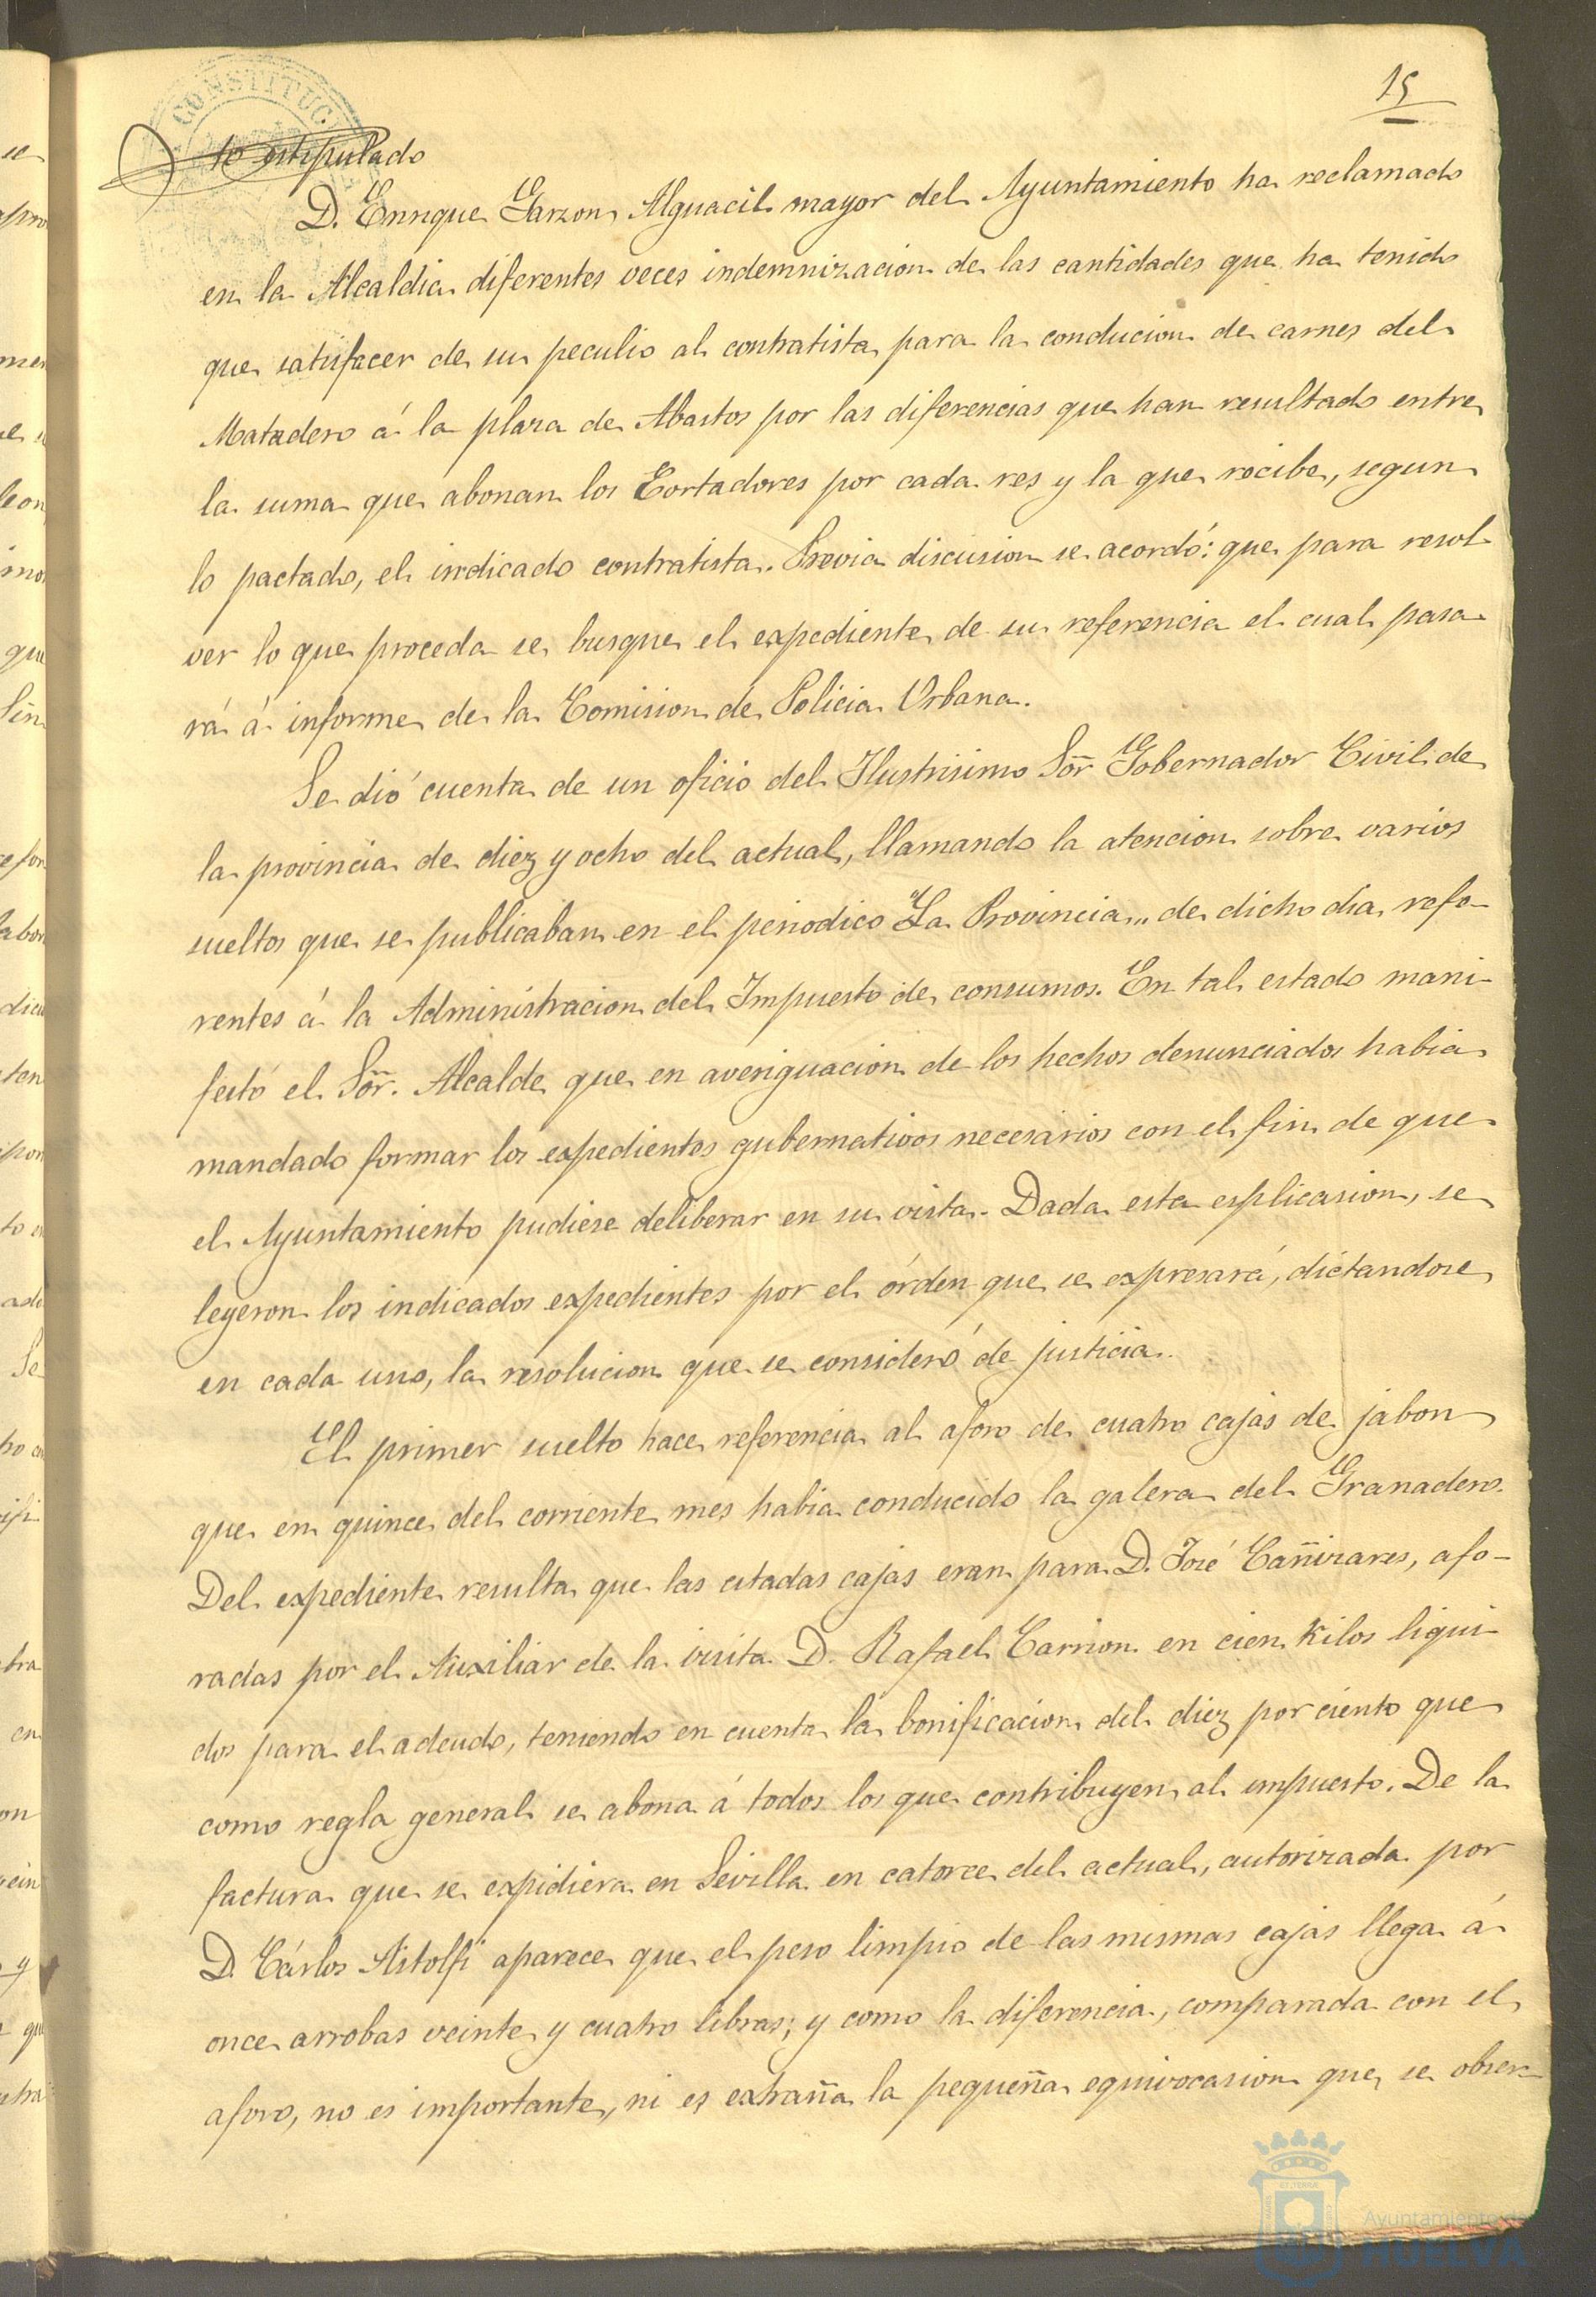 15
CONSTITUC
lo estipulado
D. Enrique Garzon, Alguacil mayor del Ayuntamiento ha reclamado
en la Alcaldia diferentes veces indemnizacion de las cantidades que ha tenido
que satisfacer de su peculio al contratista para la conducion de carnes del
Matadero á la plaza de Abastos por las diferencias que han resultado entre
la suma que abonan los Cortadores por cada res y la que recibe, segun
lo pactado, el indicado contratista. Previa discusion se acordó: que para resol-
ver lo que proceda se busque el expediente de su referencia el cual pasa-
rá á informe de la Comision de Policia Urbana.
Se dió cuenta de un oficio del Ilustrisimo Sōr Gobernador Civil de
la provincia de diez y ocho del actual, llamando la atencion sobre varios
sueltos que se publicaban en el periodico "La Provincia" de dicho dia, refe-
rentes á la Administracion del Impuesto de consumos. En tal estado mani-
festó el Sōr. Alcalde que en averiguacion de los hechos denunciados habia
mandado formar los expedientes gubernativos necesarios con el fin de que
el Ayuntamiento pudiese deliberar en su vista. Dada esta esplicasion, se
leyeron los indicados expedientes por el órden que se expresará, dictandose
en cada uno, la resolucion que se consideró de justicia.
El primer suelto hace referencia al aforo de cuatro cajas de jabon
que en quince del corriente mes habia conducido la galera del Granadero.
Del expediente resulta que las citadas cajas eran para D. José Cañizares, afo-
radas por el Auxiliar de la visita D. Rafael Carrion en cien Kilos liqui-
dos para el adeudo, teniendo en cuenta la bonificacion del diez por ciento que
como regla general se abona á todos los que contribuyen al impuesto. De la
factura que se expidiera en Sevilla en catorce del actual, autorizada por
D. Cárlos Astolfi aparece que el peso limpio de las mismas cajas llega á
once arrobas veinte y cuatro libras; y como la diferencia, comparada con el
aforo, no es importante, ni es extraña la pequeña equivocasion que se obser-
Ayuntamiento de
HUELVA